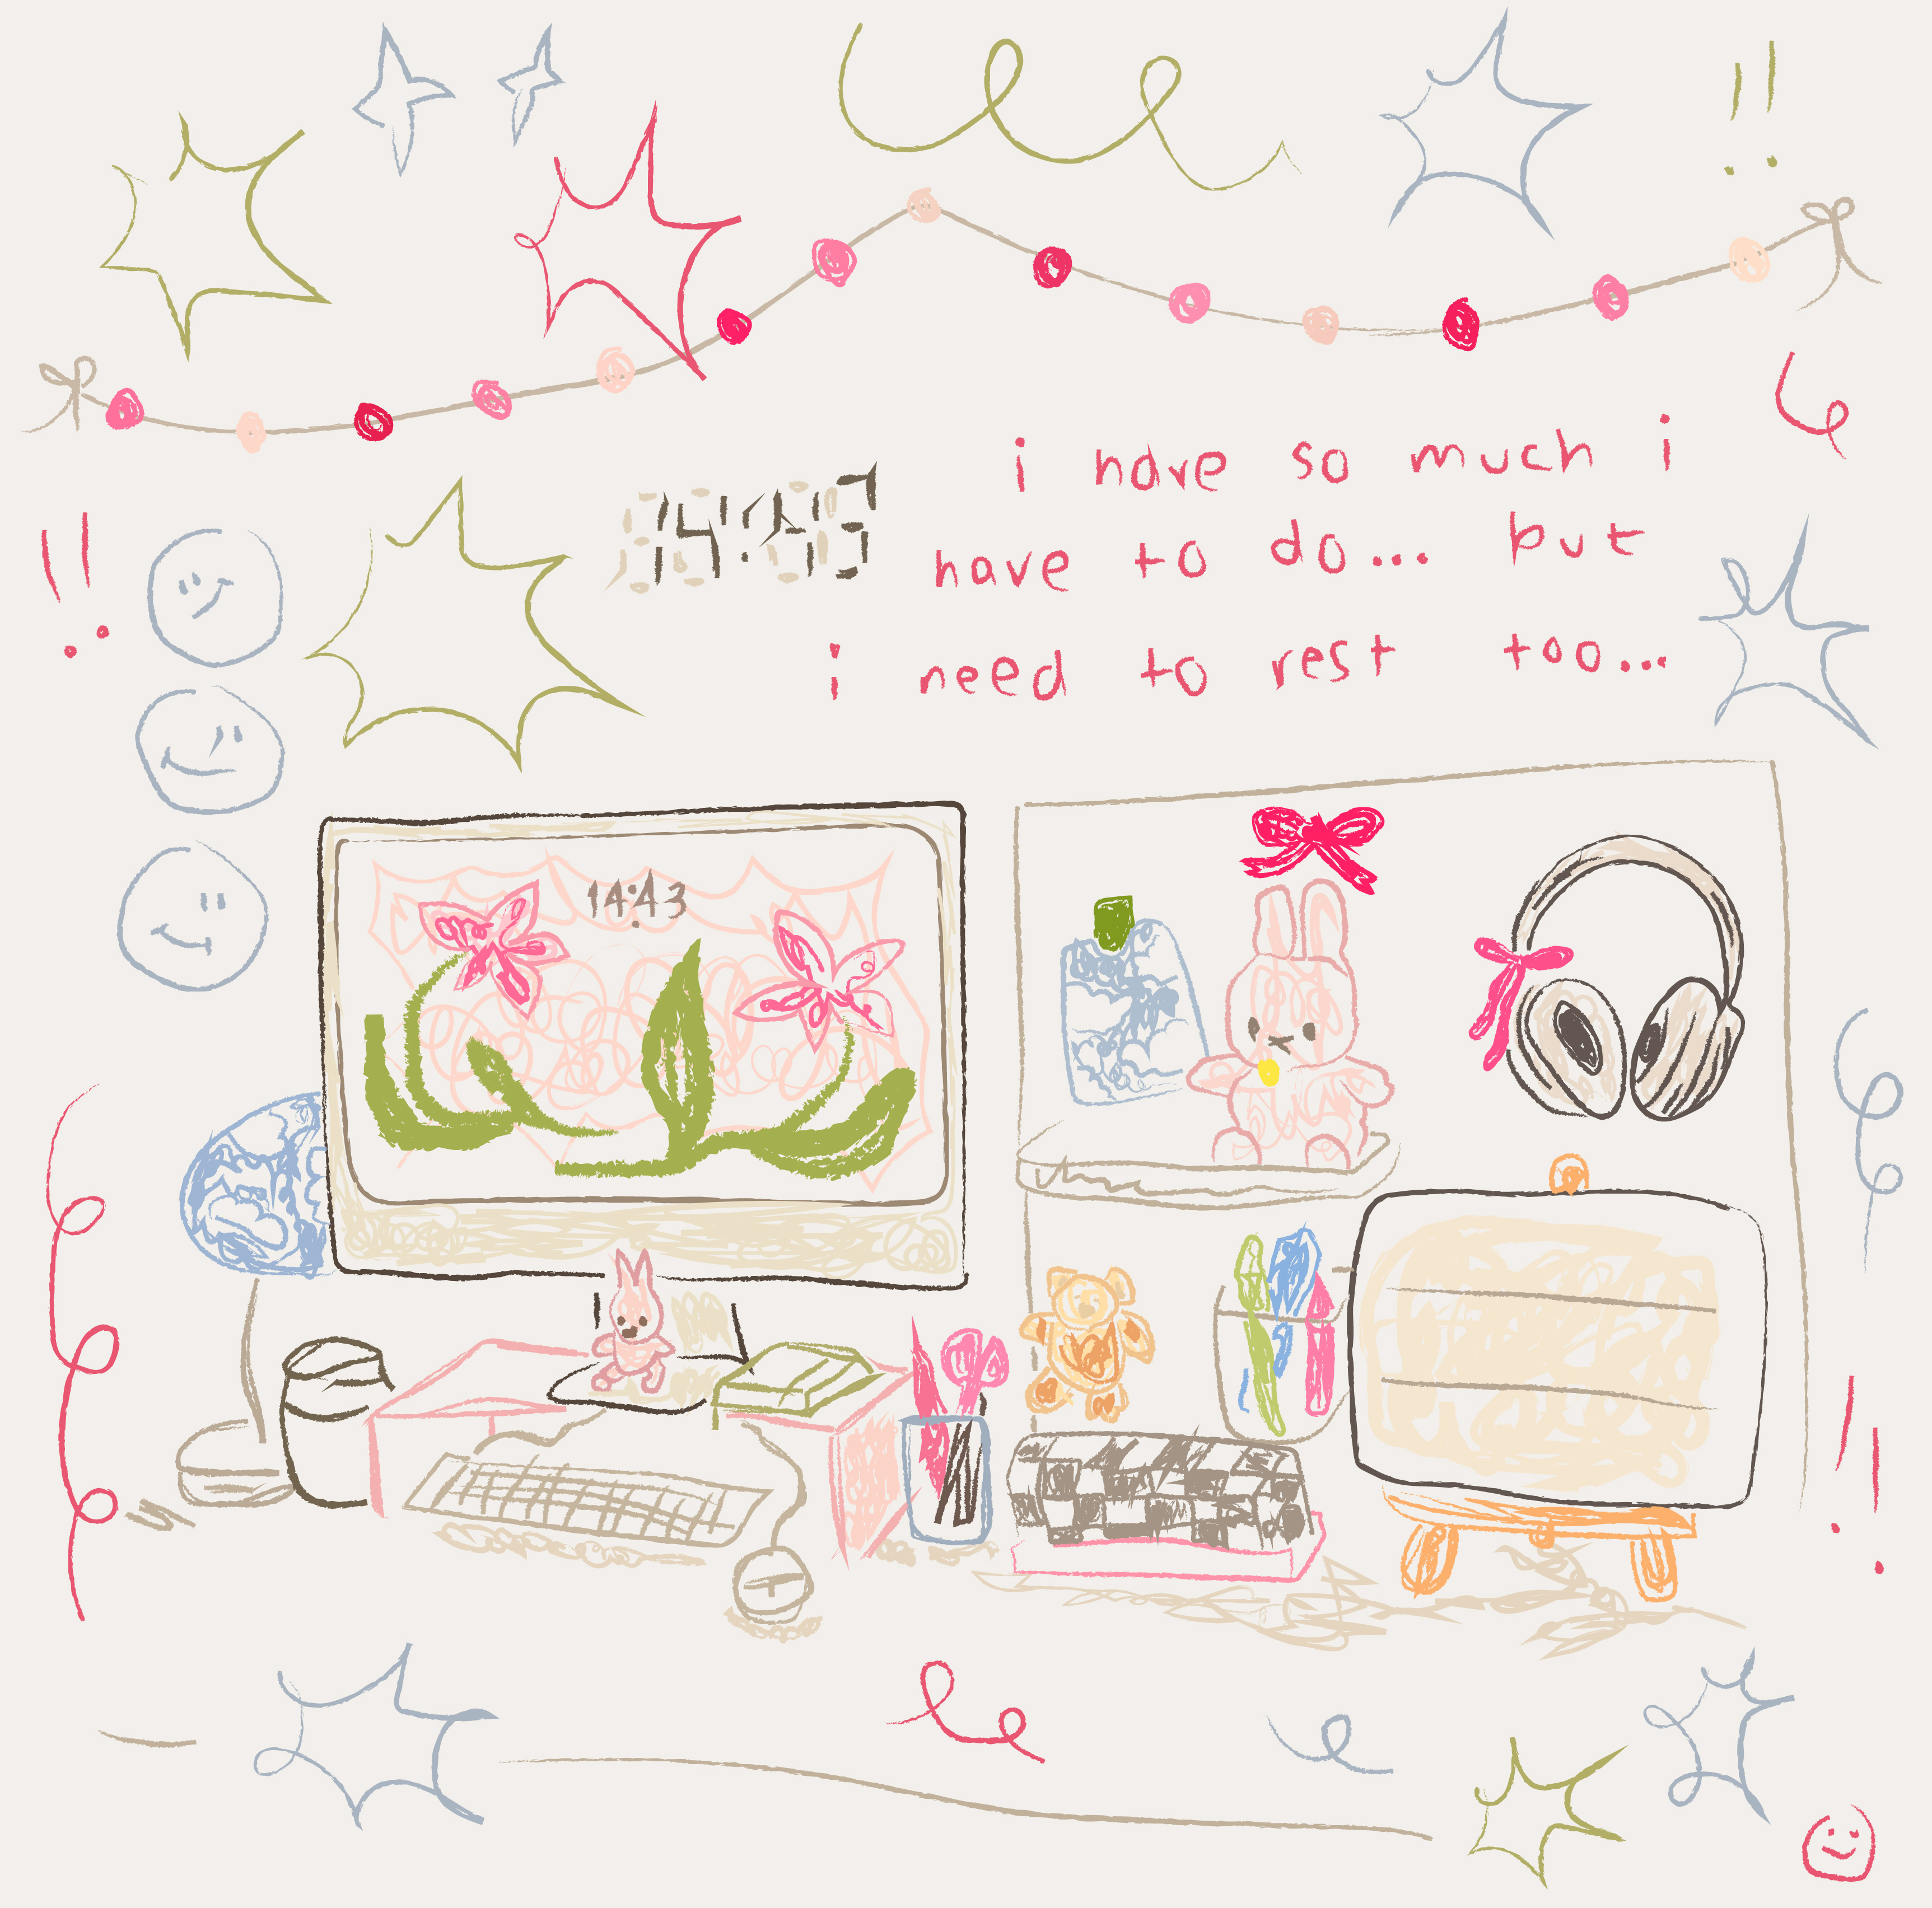 i have so much i
have to do... but
i need to rest too...
14:43